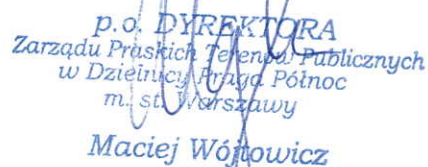 p.o. DYREKTORA
Zarządu Praskich Terenów Publicznych
w Dzielnicy Praga Północ
m. st. Warszawy
Maciej Wójtowicz